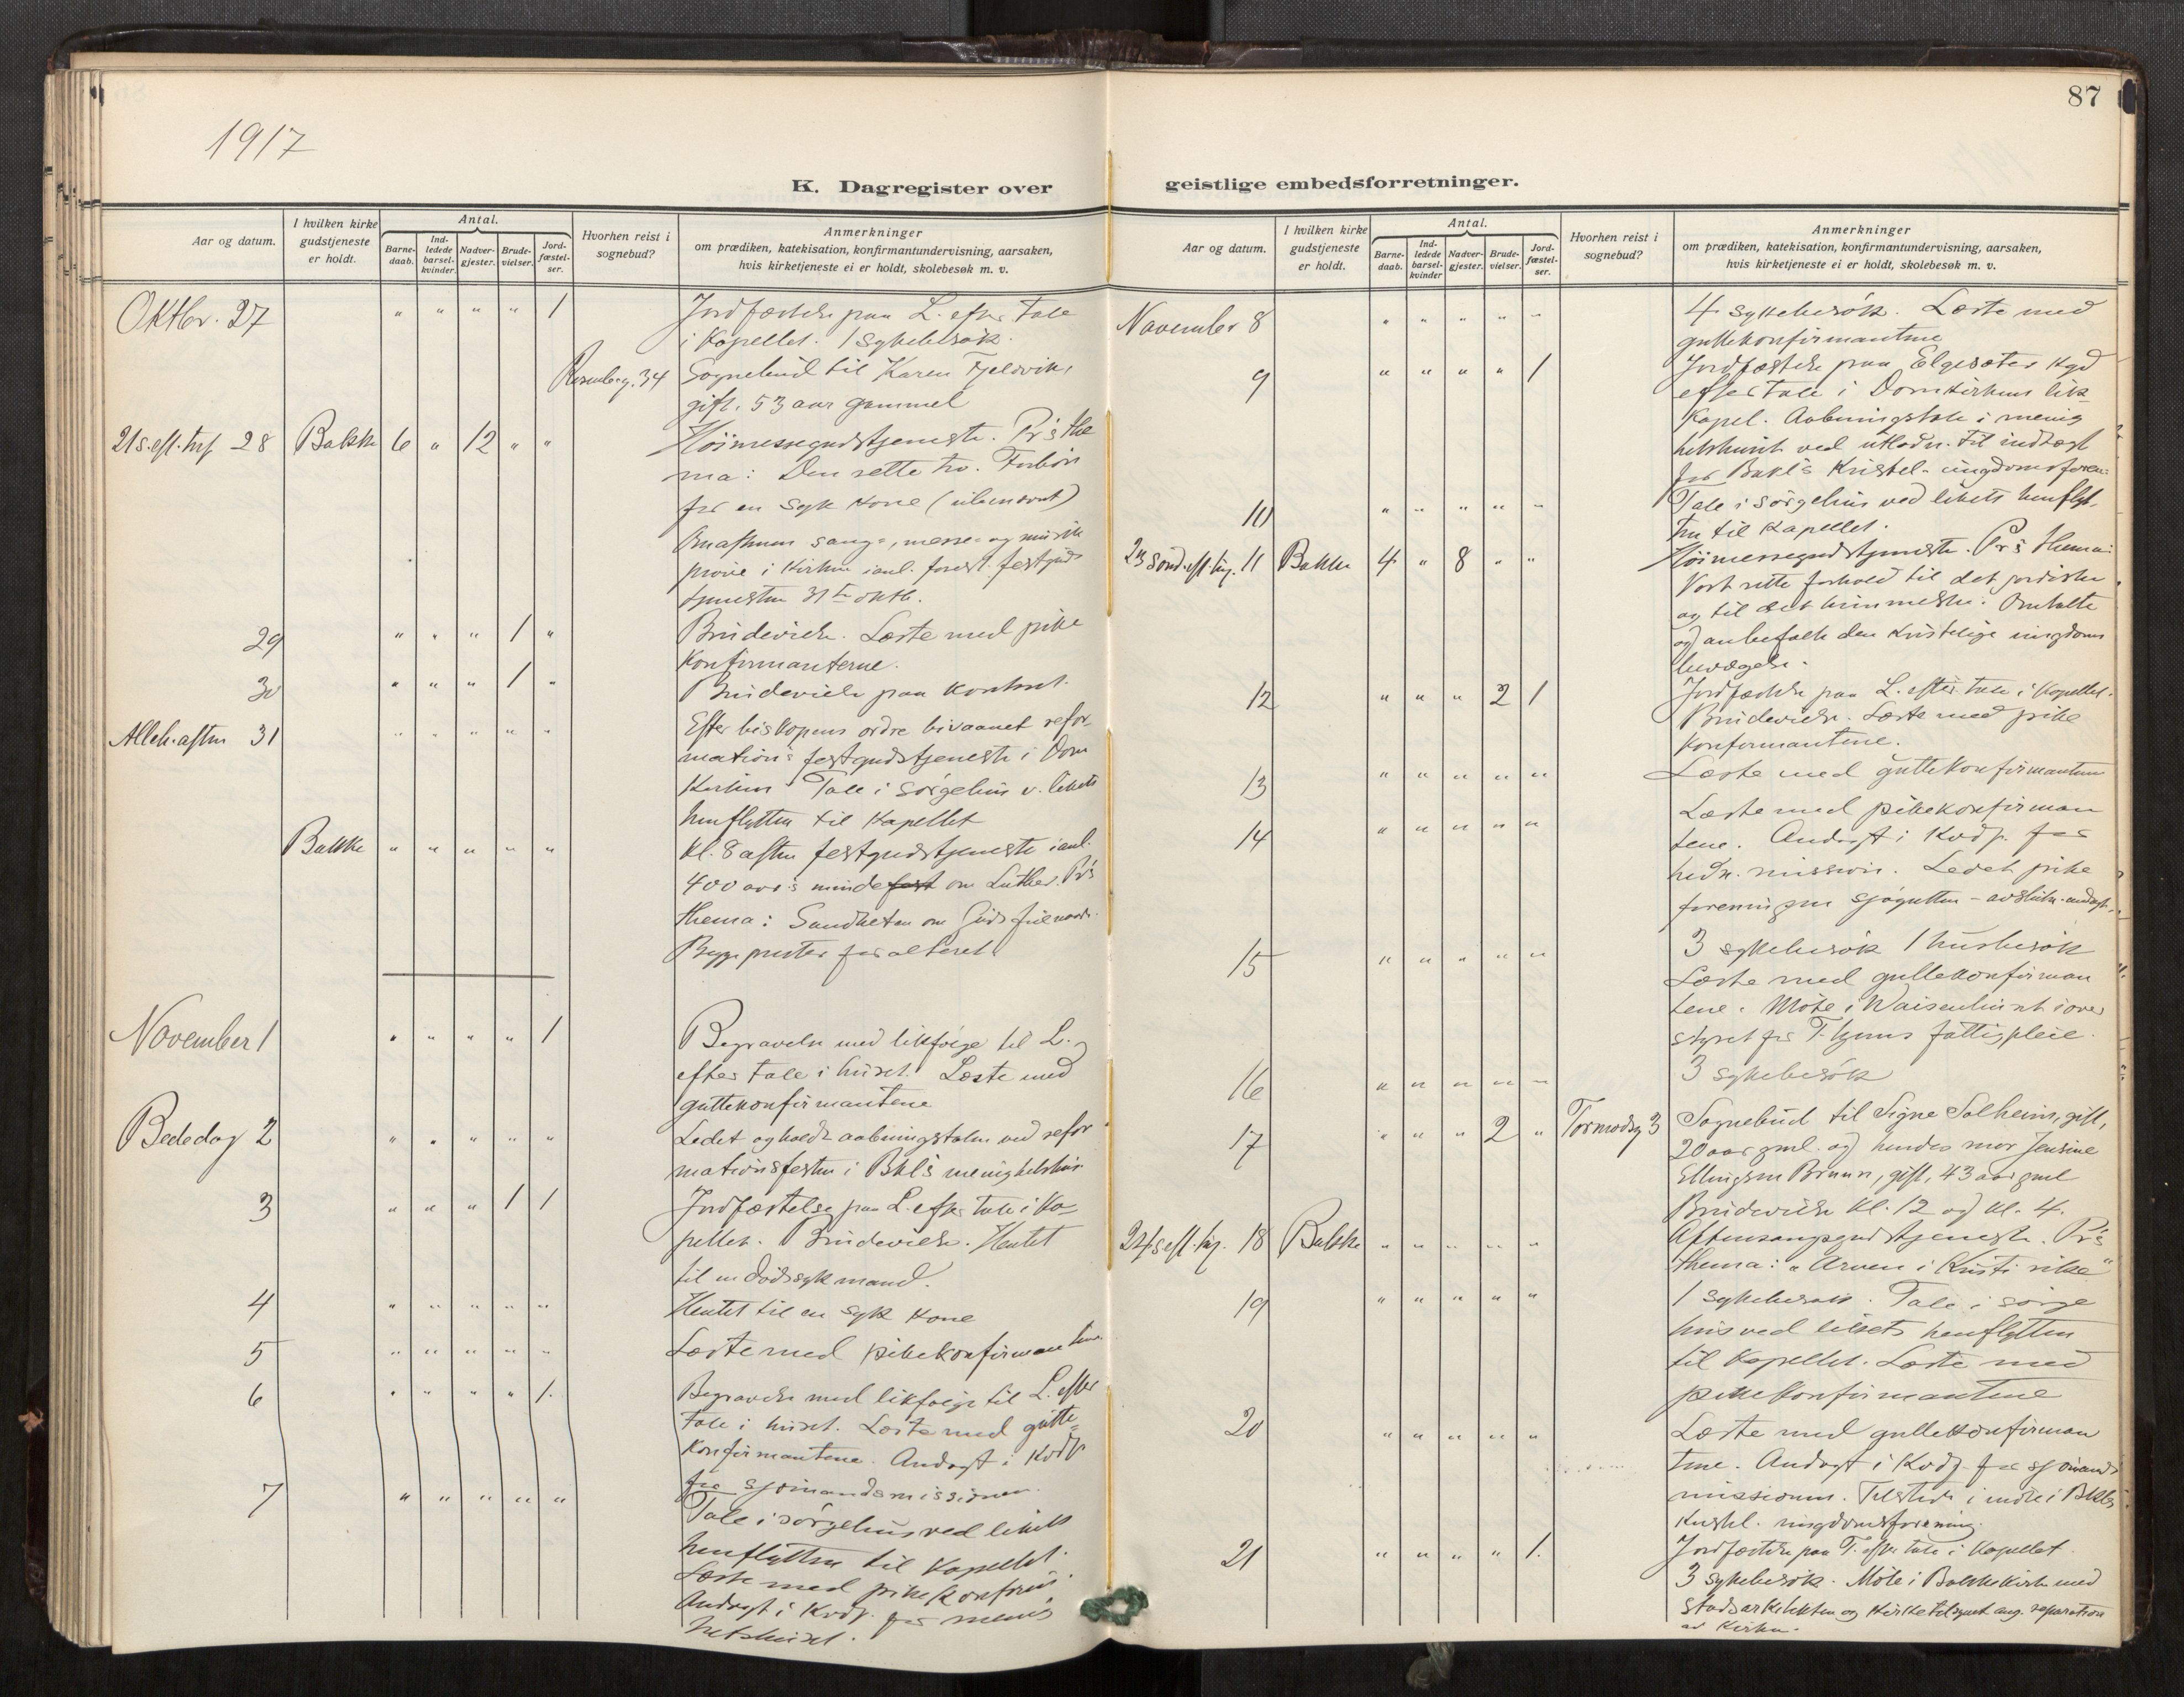 87
1917
K. Dagregister over geistlige embedsforretninger.
Aar og datum.
I hvilken kirke gudstjeneste er holdt.
Antal.
Barnedaab.
Indledede barselkvinder.
Nadvergjester.
Brudevielser.
Jordfæstelser.
Hvorhen reist i sognebud?
Anmerkninger
om prædiken, katekisation, konfirmantundervisning, aarsaken,
hvis kirketjeneste ei er holdt, skolebesøk m. v.
Oktbr. 27 " " " " 1 Jordfæstelse paa L. efter tale
i Kapellet. 1 sykebesök.
Rosenbg. 34 Sognebud til Karen Fjeldvik,
gift, 53 aar gammel
21 s. eft. trf 28 Bakke 6 " 12 " " Höimessegudstjeneste. Pr's the
ma: Den rette tro. Forbön
for en syk kone (ubenævnt)
sang-, messe- og musik
pröve i Kirken i anl. forest. festguds
tjenesten 31te oktb.
29 " " " 1 " Brudevielse. Læste med pike
konfirmanterne.
30 " " " 1 " Brudevielse paa kontoret.
Alleh. aften 31 " " " " " Efter biskopens ordre bivaanet refor-
mations festgudstjeneste i Dom
kirken Tale i sörgehus v. likets
henflytten til Kapellet
Bakke " " " " " Kl. 8 aften festgudstjeneste i anl.
400 aars mindefest om Luther. Pr's
thema: Sandheten om Guds frie naade.
Begge prester for alteret
November 1 " " " " 1 Begravelse med likfölge til L.
efter tale i huset. Læste med
guttekonfirmantene
Bededag 2 " " " " " Ledet og holdt aabningstalen ved refor
mationsfesten i Bkl's menighetshus
3 " " " 1 1 Jordfæstelse paa L. efter tale i Ka-
pellet. Brudevielse. Hentet
til en dödssyk mand.
4 " " " " " Hentet til en syk kone
5 " " " " " Læste med pikekonfirmantene.
6 " " " " 1. Begravelse med likfölge til L. efter
tale i huset. Læste med gutte-
konfirmantene. Andagt i Kvdf
for sjömandsmissionen.
7 " " " " " Tale i sörgehus ved likets
henflytten til Kapellet.
Læste med pikekonfirm.
Andagt i Kvdf. for menig
hetshuset.
Aar og datum.
I hvilken kirke gudstjeneste er holdt.
Antal.
Barnedaab.
Indledede barselkvinder
Nadvergjester.
Brudevielser.
Jordfæstelser.
Hvorhen reist i sognebud?
Anmerkninger
om prædiken, katekisation, konfirmantundervisning, aarsaken,
hvis kirketjeneste ei er holdt, skolebesøk m. v.
November 8 " " " " " 4 sykebesök. Læste med
guttekonfirmantene
9 " " " " 1 Jordfæstelse paa Elgesæter kgd
efter tale i Domkirkens lik
kapel. Aabningstale i menig
hetshuset ved utlodn. til indtægt
for Bakl's kristel. ungdomsforen.
10 " " " " " Tale i sörgehus ved likets henflyt-
ten til kapellet.
23 sönd. eft. trf. 11 Bakke 4 " 8 " " Höimessegudstjeneste. Pr's thema:
Vort rette forhold til det jordiske
og til det himmelske. Omtalte
og anbefalte den kristelige ungdoms
bevægelse.
12 " " " 2 1 Jordfæstelse paa L. efter tale i kapellet.
Brudevielse. Læste med pike
konfirmantene.
13 " " " " " Læste med guttekonfirmantene
14 " " " " " Læste med pikekonfirman
tene. Andagt i Kvdf. for
hedn. mission. Ledet pike
foreningen
15 " " " " " 3 sykebesök 1 husbesök
Læste med guttekonfirman
tene. Möte i Waisenhuset i over
styret for T.hjems fattigpleie.
16 " " " " " 3 sykebesök
17 " " " 2 " Tormodsg 3 Sognebud til Signe Solheim, gift,
20 aar gml. og hendes mor Jensine
Ellingsen Bruun, gift, 43 aar gml
Brudevielse kl. 12 og kl. 4.
24 s eft. trf. 18 Bakke " " " " " Aftensangsgudstjeneste. Pr's
thema: "Arven i Kristi rike"
19 " " " " " 1 sykebesök. Tale i sörge
hus ved likets henflytten
til Kapellet. Læste med
pikekonfirmantene
20 " " " " " Læste med guttekonfirman
tene. Andagt i Kvdf. for sjömands
missionen. Tilstede i möte i Bkl's
kristel. ungdomsforening.
21 " " " " 1. Jordfæstelse paa T. efter tale i Kapellet.
3 sykebesök. Möte i Bakke kirke med
stadsarkitekten og kirketilsynet ang. reparation
av kirken.